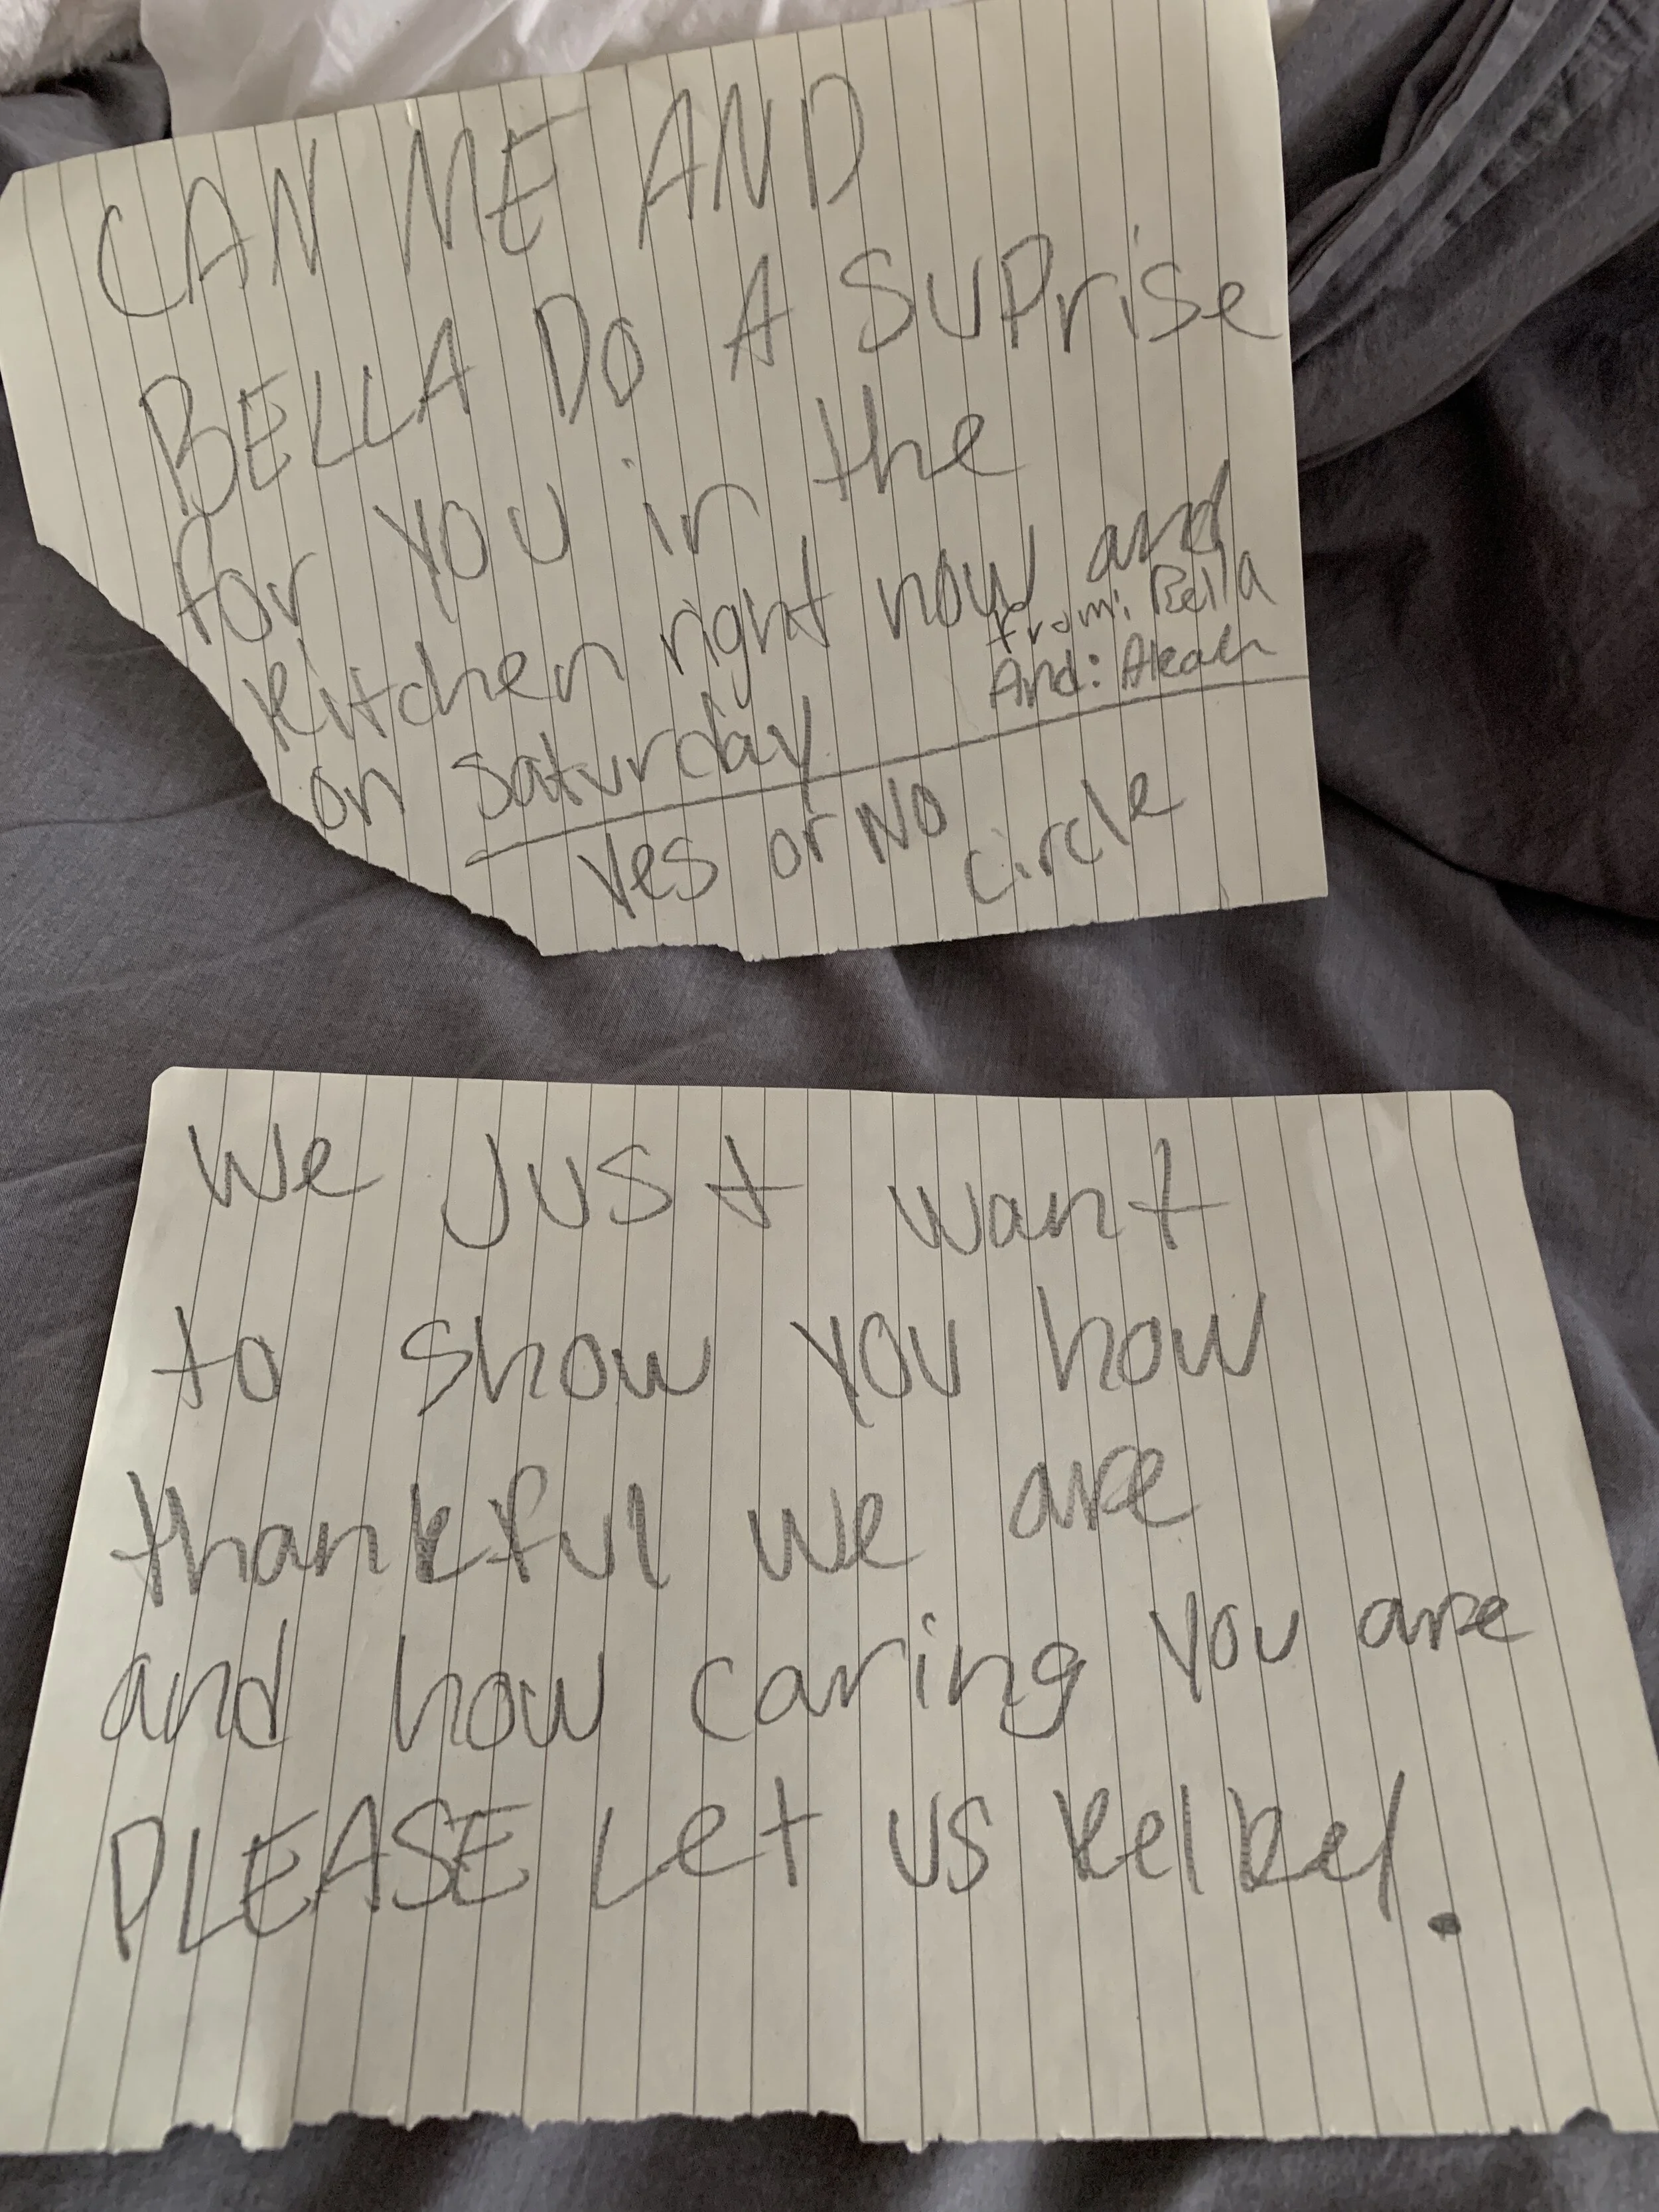 CAN ME AND
BELLA DO A SUPrise
for YOU in the
kitchen right now and
on saturday
from: Bella
And:
Yes or No circle
We JUST want
to show YOU how
thankful we are
and how caring you are
PLEASE Let US kelkel.